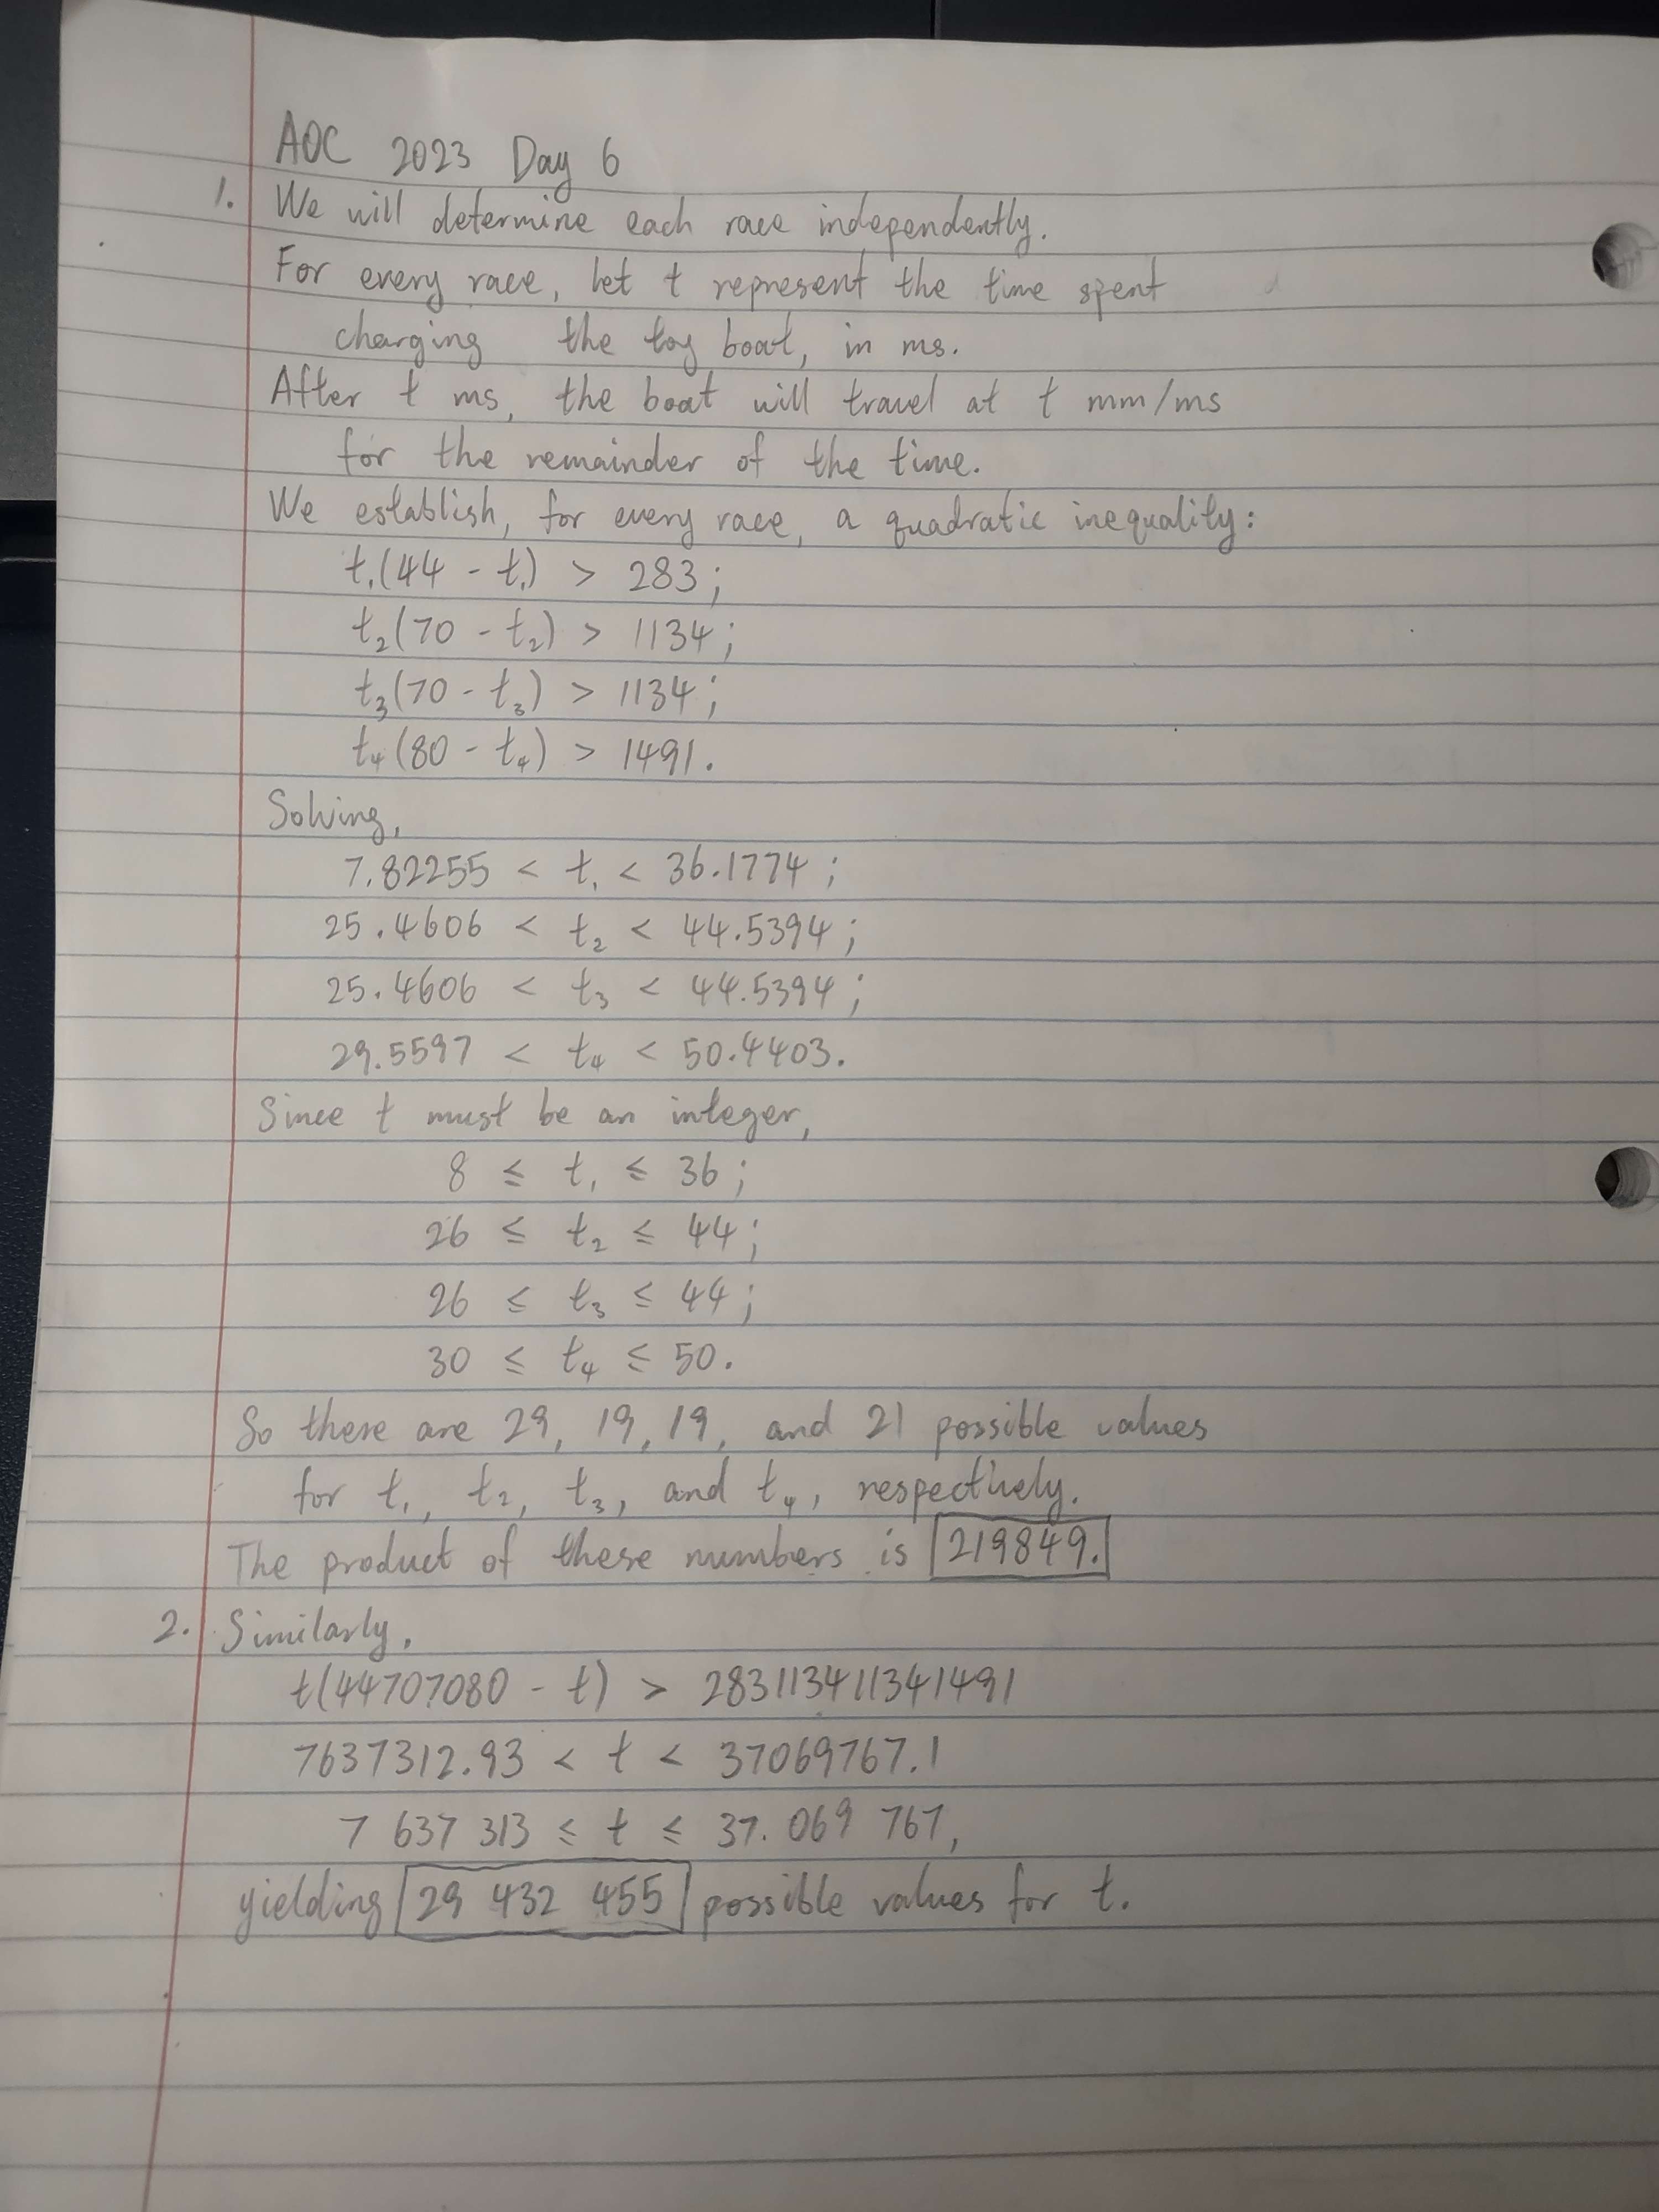 AOC 2023 Day 6
1. We will determine each race independently.
For every race, let t represent the time spent
charging the toy boat, in ms.
After t ms, the boat will travel at t mm/ms
for the remainder of the time.
We establish, for every race, a quadratic inequality:
t₁(44 - t₁) > 283;
t₂(70 - t₂) > 1134;
t₃(70 - t₃) > 1134;
t₄(80 - t₄) > 1491.
Solving,
7.82255 < t₁ < 36.1774;
25.4606 < t₂ < 44.5394;
25.4606 < t₃ < 44.5394;
29.5597 < t₄ < 50.4403.
Since t must be an integer,
8 ≤ t₁ ≤ 36;
26 ≤ t₂ ≤ 44;
26 ≤ t₃ ≤ 44;
30 ≤ t₄ ≤ 50.
So there are 29, 19, 19, and 21 possible values
for t₁, t₂, t₃, and t₄, respectively.
The product of these numbers is 219849.
2. Similarly,
t(44707080 - t) > 283113411341491
7637312.93 < t < 37069767.1
7 637 313 ≤ t ≤ 37. 069 767,
yielding 29 432 455 possible values for t.